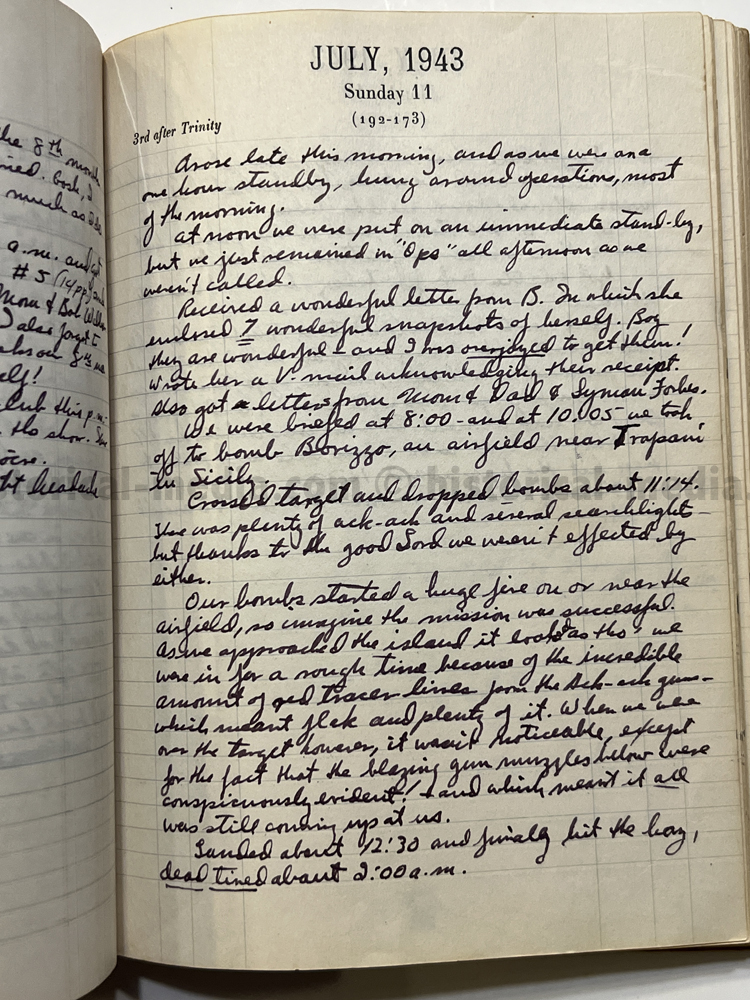 he 8th month
ned. Gosh, I
much as
a.m. and got
# 5 (14pp) and
Mom & Bob
I also forgot to
8th
elf!
Club this p.m.
to the show.
ocre.
ht headache
JULY, 1943
Sunday 11
(192-173)
3rd after Trinity
Arose late this morning, and as we were on a
one hour standby, hung around operations, most
of the morning.
At noon we were put on an immediate stand-by,
but we just remained in "Ops" all afternoon as we
weren't called.
Received a wonderful letter from B. In which she
enclosed 7 wonderful snapshots of herself. Boy
they are wonderful - and I was overjoyed to get them!
Wrote her a V-mail acknowledging their receipt.
Also got letters from Mom & Dad & Lyman Forbes.
We were briefed at 8:00 - and at 10:05 we took
off to bomb Borizzo, an airfield near Trapani
in Sicily.
Crossed target and dropped bombs about 11:14.
There was plenty of ack-ack and several searchlights -
but thanks to the good Lord we weren't effected by
either.
Our bombs started a huge fire on or near the
airfield, so imagine the mission was successful.
As we approached the island it looked as tho' we
were in for a rough time because of the incredible
amount of red tracer lines from the Ack-ack guns -
which meant flak and plenty of it. When we were
over the target however, it wasn't noticeable, except
for the fact that the blazing gun muzzles below were
conspicuously evident! - and which meant it all
was still coming up at us.
Landed about 12:30 and finally hit the hay,
dead tired about 2:00 a.m.